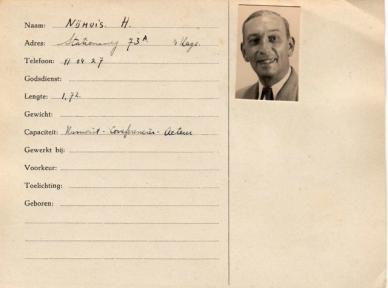 Naam: NIJHUIS. H.
Adres: Stationsweg 73A 's Hage.
Telefoon: 11 04 27
Godsdienst:
Lengte: 1,72
Gewicht:
Capaciteit: Humorist - Conferencier - Acteur
Gewerkt bij:
Voorkeur:
Toelichting:
Geboren: